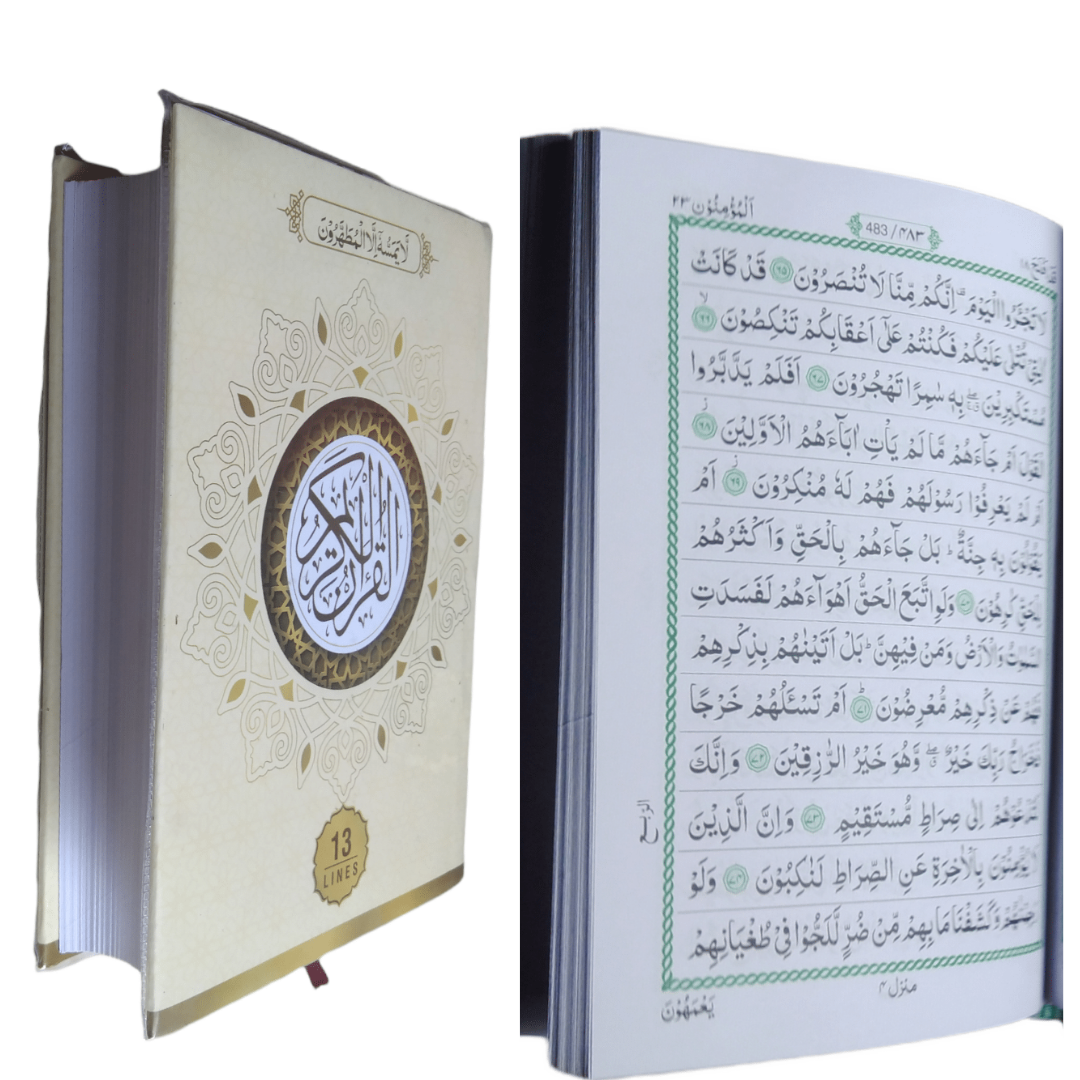 لَا يَمَسُّهٗٓ اِلَّا الْمُطَهَّرُوْنَ
القرآن الكريم
13
LINES
اَلْمُؤْمِنُوْن ٢٣
483 / ۴۸۳
لَا تَجْـَٔرُوا الْيَوْمَ ۫ اِنَّكُمْ مِّنَّا لَا تُنْصَرُوْنَ ۶۵ قَدْ كَانَتْ
اٰيٰتِيْ تُتْلٰى عَلَيْكُمْ فَكُنْتُمْ عَلٰٓى اَعْقَابِكُمْ تَنْكِصُوْنَ ۶۶
مُسْتَكْبِرِيْنَ بِهٖ سٰمِرًا تَهْجُرُوْنَ ۶۷ اَفَلَمْ يَدَّبَّرُوا
الْقَوْلَ اَمْ جَآءَهُمْ مَّا لَمْ يَاْتِ اٰبَآءَهُمُ الْاَوَّلِيْنَ ۶۸
اَمْ لَمْ يَعْرِفُوْا رَسُوْلَهُمْ فَهُمْ لَهٗ مُنْكِرُوْنَ ۶۹ اَمْ
يَقُوْلُوْنَ بِهٖ جِنَّةٌ ؕ بَلْ جَآءَهُمْ بِالْحَقِّ وَاَكْثَرُهُمْ
لِلْحَقِّ كٰرِهُوْنَ ۷۰ وَلَوِ اتَّبَعَ الْحَقُّ اَهْوَآءَهُمْ لَفَسَدَتِ
السَّمٰوٰتُ وَالْاَرْضُ وَمَنْ فِيْهِنَّ ؕ بَلْ اَتَيْنٰهُمْ بِذِكْرِهِمْ
فَهُمْ عَنْ ذِكْرِهِمْ مُّعْرِضُوْنَ ۷۱ اَمْ تَسْـَٔلُهُمْ خَرْجًا
فَخَرَاجُ رَبِّكَ خَيْرٌ ۖ وَّهُوَ خَيْرُ الرّٰزِقِيْنَ ۷۲ وَاِنَّكَ
لَتَدْعُوْهُمْ اِلٰى صِرَاطٍ مُّسْتَقِيْمٍ ۷۳ وَاِنَّ الَّذِيْنَ
لَا يُؤْمِنُوْنَ بِالْاٰخِرَةِ عَنِ الصِّرَاطِ لَنٰكِبُوْنَ ۷۴ وَلَوْ
رَحِمْنٰهُمْ وَكَشَفْنَا مَا بِهِمْ مِّنْ ضُرٍّ لَّلَجُّوْا فِيْ طُغْيَانِهِمْ
الربع
منزل ۴
يَعْمَهُوْنَ